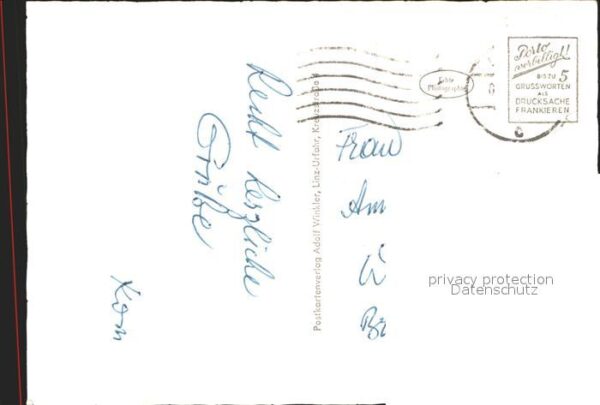 Recht herzliche
Grüße
Postkartenverlag Adolf Winkler, Linz-Urfahr, Kreuzstraße 4
Echte
Photographie
Porto
verbilligt!
BIS ZU 5
GRUSSWORTEN
ALS
DRUCKSACHE
FRANKIEREN
Frau
Am
privacy protection
Datenschutz